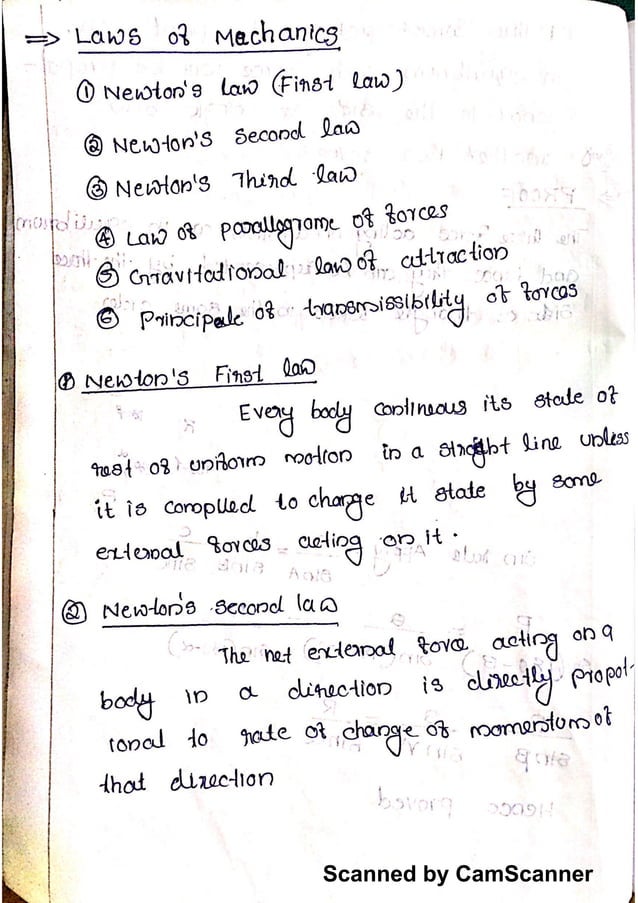 ⇒ Laws of Mechanics
① Newton's law (First law)
② Newton's second law
③ Newton's Third law
④ Law of parallograme of forces
⑤ Gravitational law of attraction
⑥ Principale of transmissibility of forces
① Newton's First law
Every body contineous its state of
rest or uniform motion in a straight line unless
it is complled to change it state by some
external forces acting on it.
② Newton's second law
The net external force acting on a
body in a direction is directly propot-
ional to rate of change of momentum of
that direction
Scanned by CamScanner